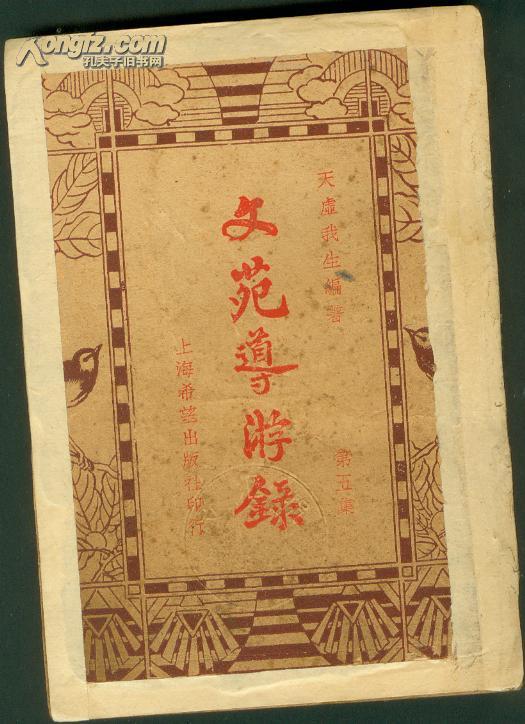 Kongfz.com
孔夫子旧书网
天虛我生編著
文苑導游錄
第五集
上海希望出版社印行